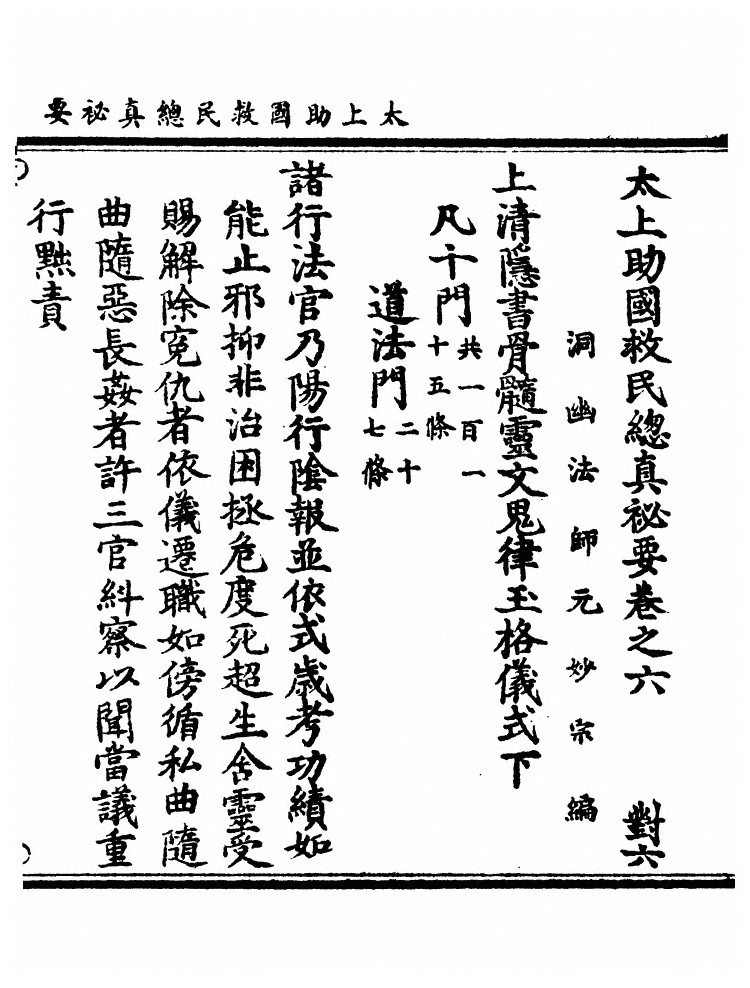 太上助國救民總真祕要
太上助國救民總真祕要卷之六 對六
洞幽法師元妙宗編
上清隱書骨髓靈文鬼律玉格儀式下
凡十門共一百一十五條
道法門二十七條
諸行法官乃陽行陰報並依式歲考功績如
能止邪抑非治困拯危度死超生含靈受
賜解除冤仇者依儀遷職如傍循私曲隨
曲隨惡長姦者許三官糾察以聞當議重
行黜責